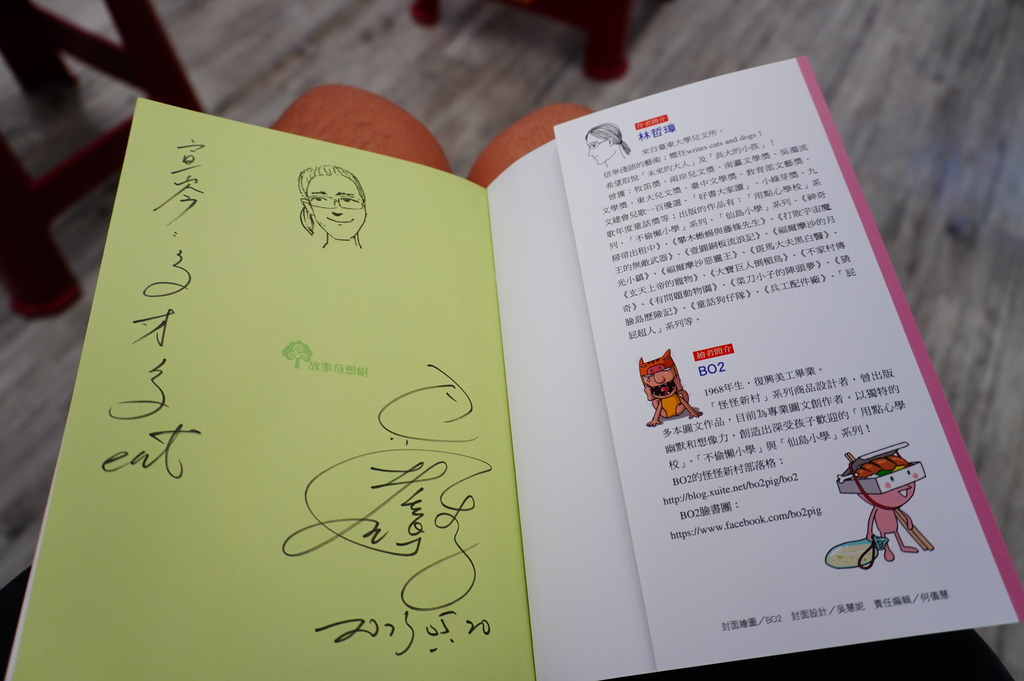 宣岑：
多
才
多
eat
故事奇想樹
2023.05.20
作者簡介
林哲璋
來自臺東大學兒文所。
信奉淺語的藝術；嚮往writes cats and dogs！
希望取悅「未來的大人」及「長大的小孩」！
曾獲：牧笛獎、兩岸兒文獎、南瀛文學獎、吳濁流
文學獎、東大兒文獎、臺中文學獎、教育部文藝獎、
文建會兒歌一百優選、「好書大家讀」、小綠芽獎、九
歌年度童話獎等；出版的作品有：「用點心學校」系
列、「不偷懶小學」系列、「仙島小學」系列、《神奇
掃帚出租中》、《攀木蜥蜴與藤條先生》、《打敗宇宙魔
王的無敵武器》、《壹圓銅板流浪記》、《福爾摩沙的月
光小鎮》、《福爾摩沙惡靈王》、《斑馬大夫黑白醫》、
《玄天上帝的寵物》、《大寶巨人倒楣鳥》、《不家村傳
奇》、《有問題動物園》、《菜刀小子的陣頭夢》、《猜
臉島歷險記》、《童話狗仔隊》、《兵工配件廠》、「屁
屁超人」系列等。
繪者簡介
BO2
1968年生，復興美工畢業。
「怪怪新村」系列商品設計者，曾出版
多本圖文作品，目前為專業圖文創作者。以獨特的
幽默和想像力，創造出深受孩子歡迎的「用點心學
校」、「不偷懶小學」與「仙島小學」系列！
BO2的怪怪新村部落格：
http://blog.xuite.net/bo2pig/bo2
BO2臉書團：
https://www.facebook.com/bo2pig
封面繪圖／BO2 封面設計／吳慧妮 責任編輯／何儀慧